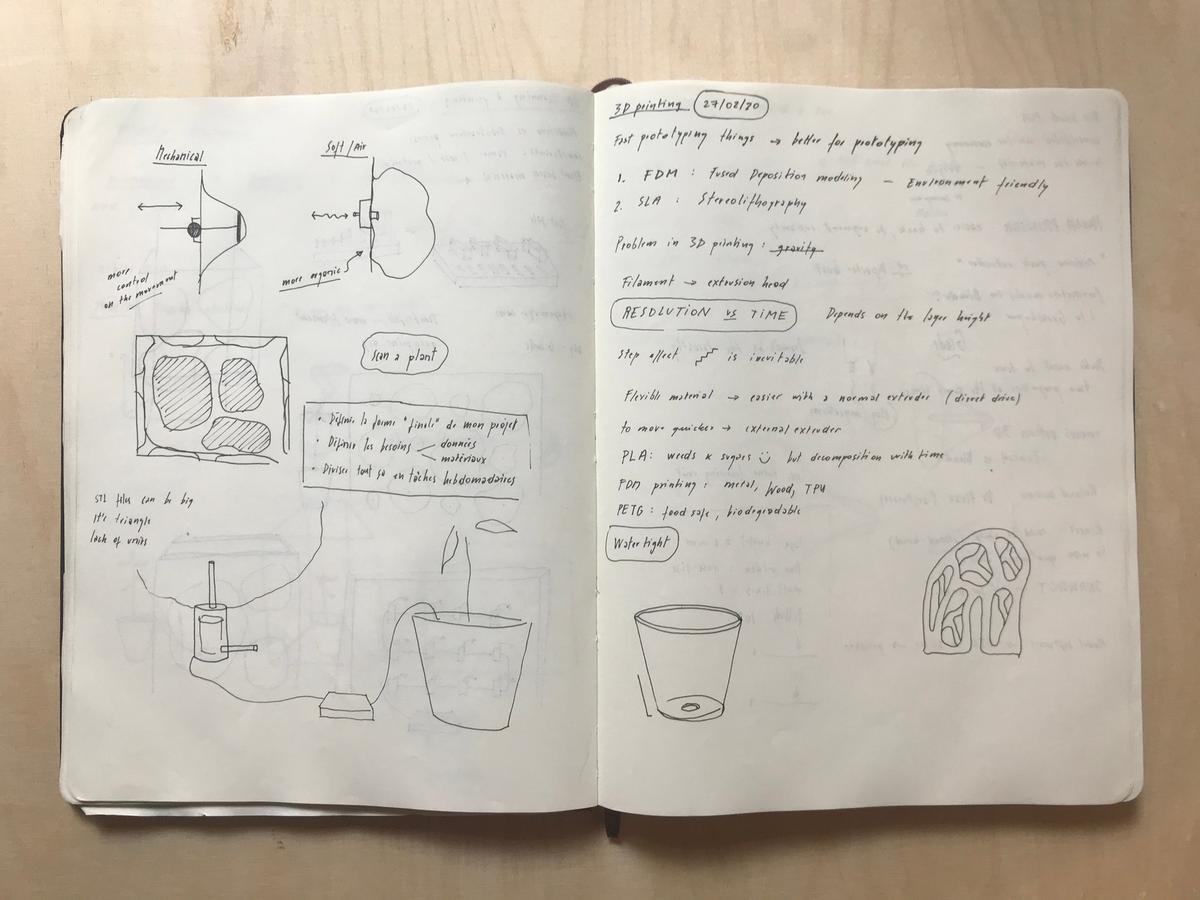 Mechanical
Soft/Air
more
control
on the movement
more organic
Scan a plant
• Définir la forme "finale" de mon projet
• Définir les besoins
données
matériaux
• Diviser tout ça en tâches hebdomadaires
STL files can be big
It's triangle
lack of units
3D printing 27/02/20
Fast prototyping things → better for prototyping
1. FDM : Fused Deposition modeling – Environment friendly
2. SLA : Stereolithography
Problem in 3D printing : gravity
Filament → extrusion head
RESOLUTION vs TIME Depends on the layer height
Step effect is inevitable
Flexible material → easier with a normal extruder (direct drive)
to move quicker → external extruder
PLA : weeds x sugars but decomposition with time
FDM printing : metal, Wood, TPU
PETG : food safe, biodegradable
Water tight